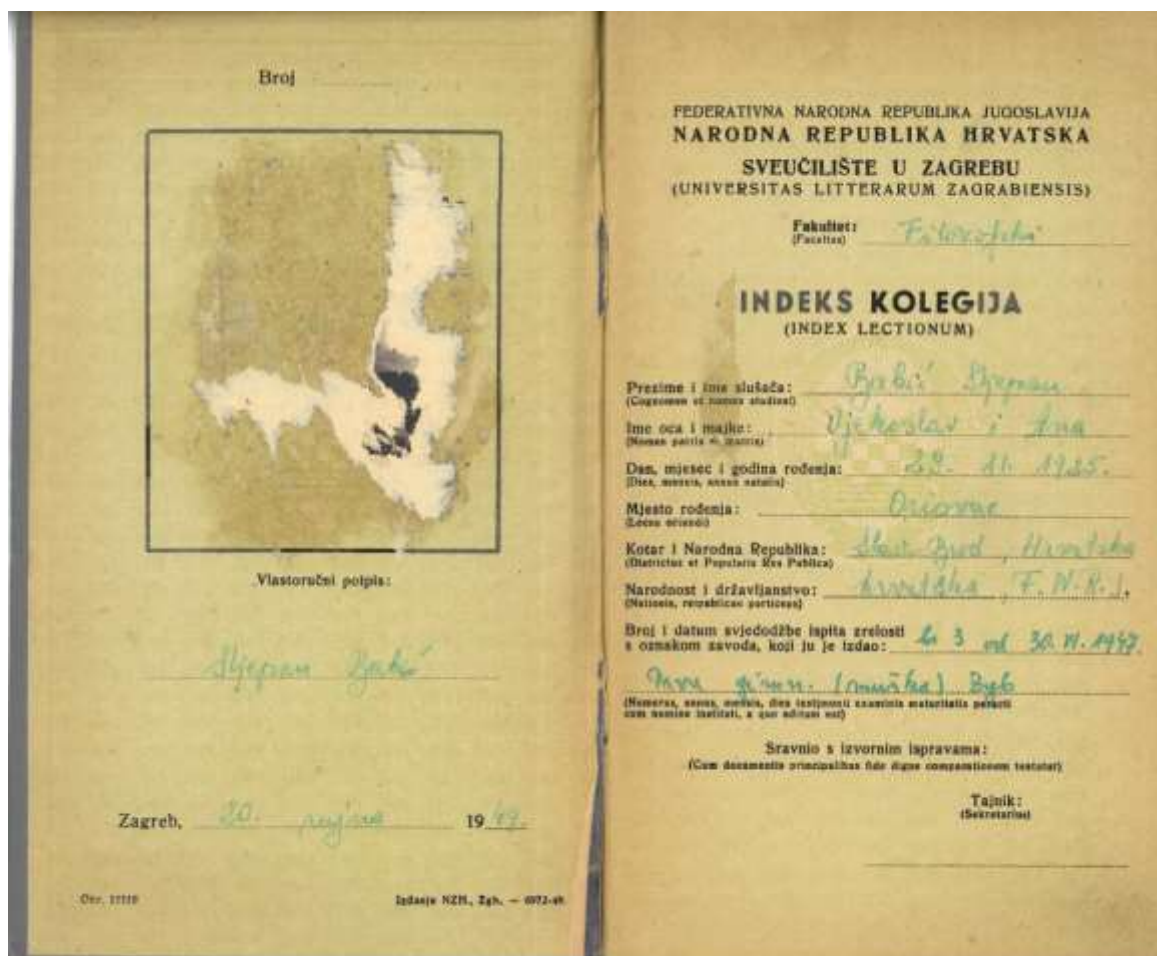 Broj
Vlastoručni potpis:
Stjepan Babić
Zagreb, 20. rujna 1949.
Obr. 11110
Izdanje NZH., Zgb. — 6972-49
FEDERATIVNA NARODNA REPUBLIKA JUGOSLAVIJA
NARODNA REPUBLIKA HRVATSKA
SVEUČILIŠTE U ZAGREBU
(UNIVERSITAS LITTERARUM ZAGRABIENSIS)
Fakultet: Filozofski
(Facultas)
INDEKS KOLEGIJA
(INDEX LECTIONUM)
Prezime i ime slušača: Babić Stjepan
(Cognomen et nomen studiosi)
Ime oca i majke: Vjekoslav i Ana
(Nomen patris et matris)
Dan, mjesec i godina rođenja: 29. 11. 1925.
(Dies, mensis, annus natalis)
Mjesto rođenja: Oriovac
(Locus oriundi)
Kotar i Narodna Republika: Slav. Brod, Hrvatska
(Districtus et Popularis Res Publica)
Narodnost i državljanstvo: hrvatska, F.N.R.J.
(Nationis, reipublicae particeps)
Broj i datum svjedodžbe ispita zrelosti
s oznakom zavoda, koji ju je izdao: 3 od 30. VI. 1947.
gimn. (muška) Zgb
(Numerus, annus, mensis, dies testimonii examinis maturitatis peracti
cum nomine instituti, a quo editum est)
Sravnio s izvornim ispravama:
(Cum documentis principalibus fide digne comparationem testatur)
Tajnik:
(Sekretarius)